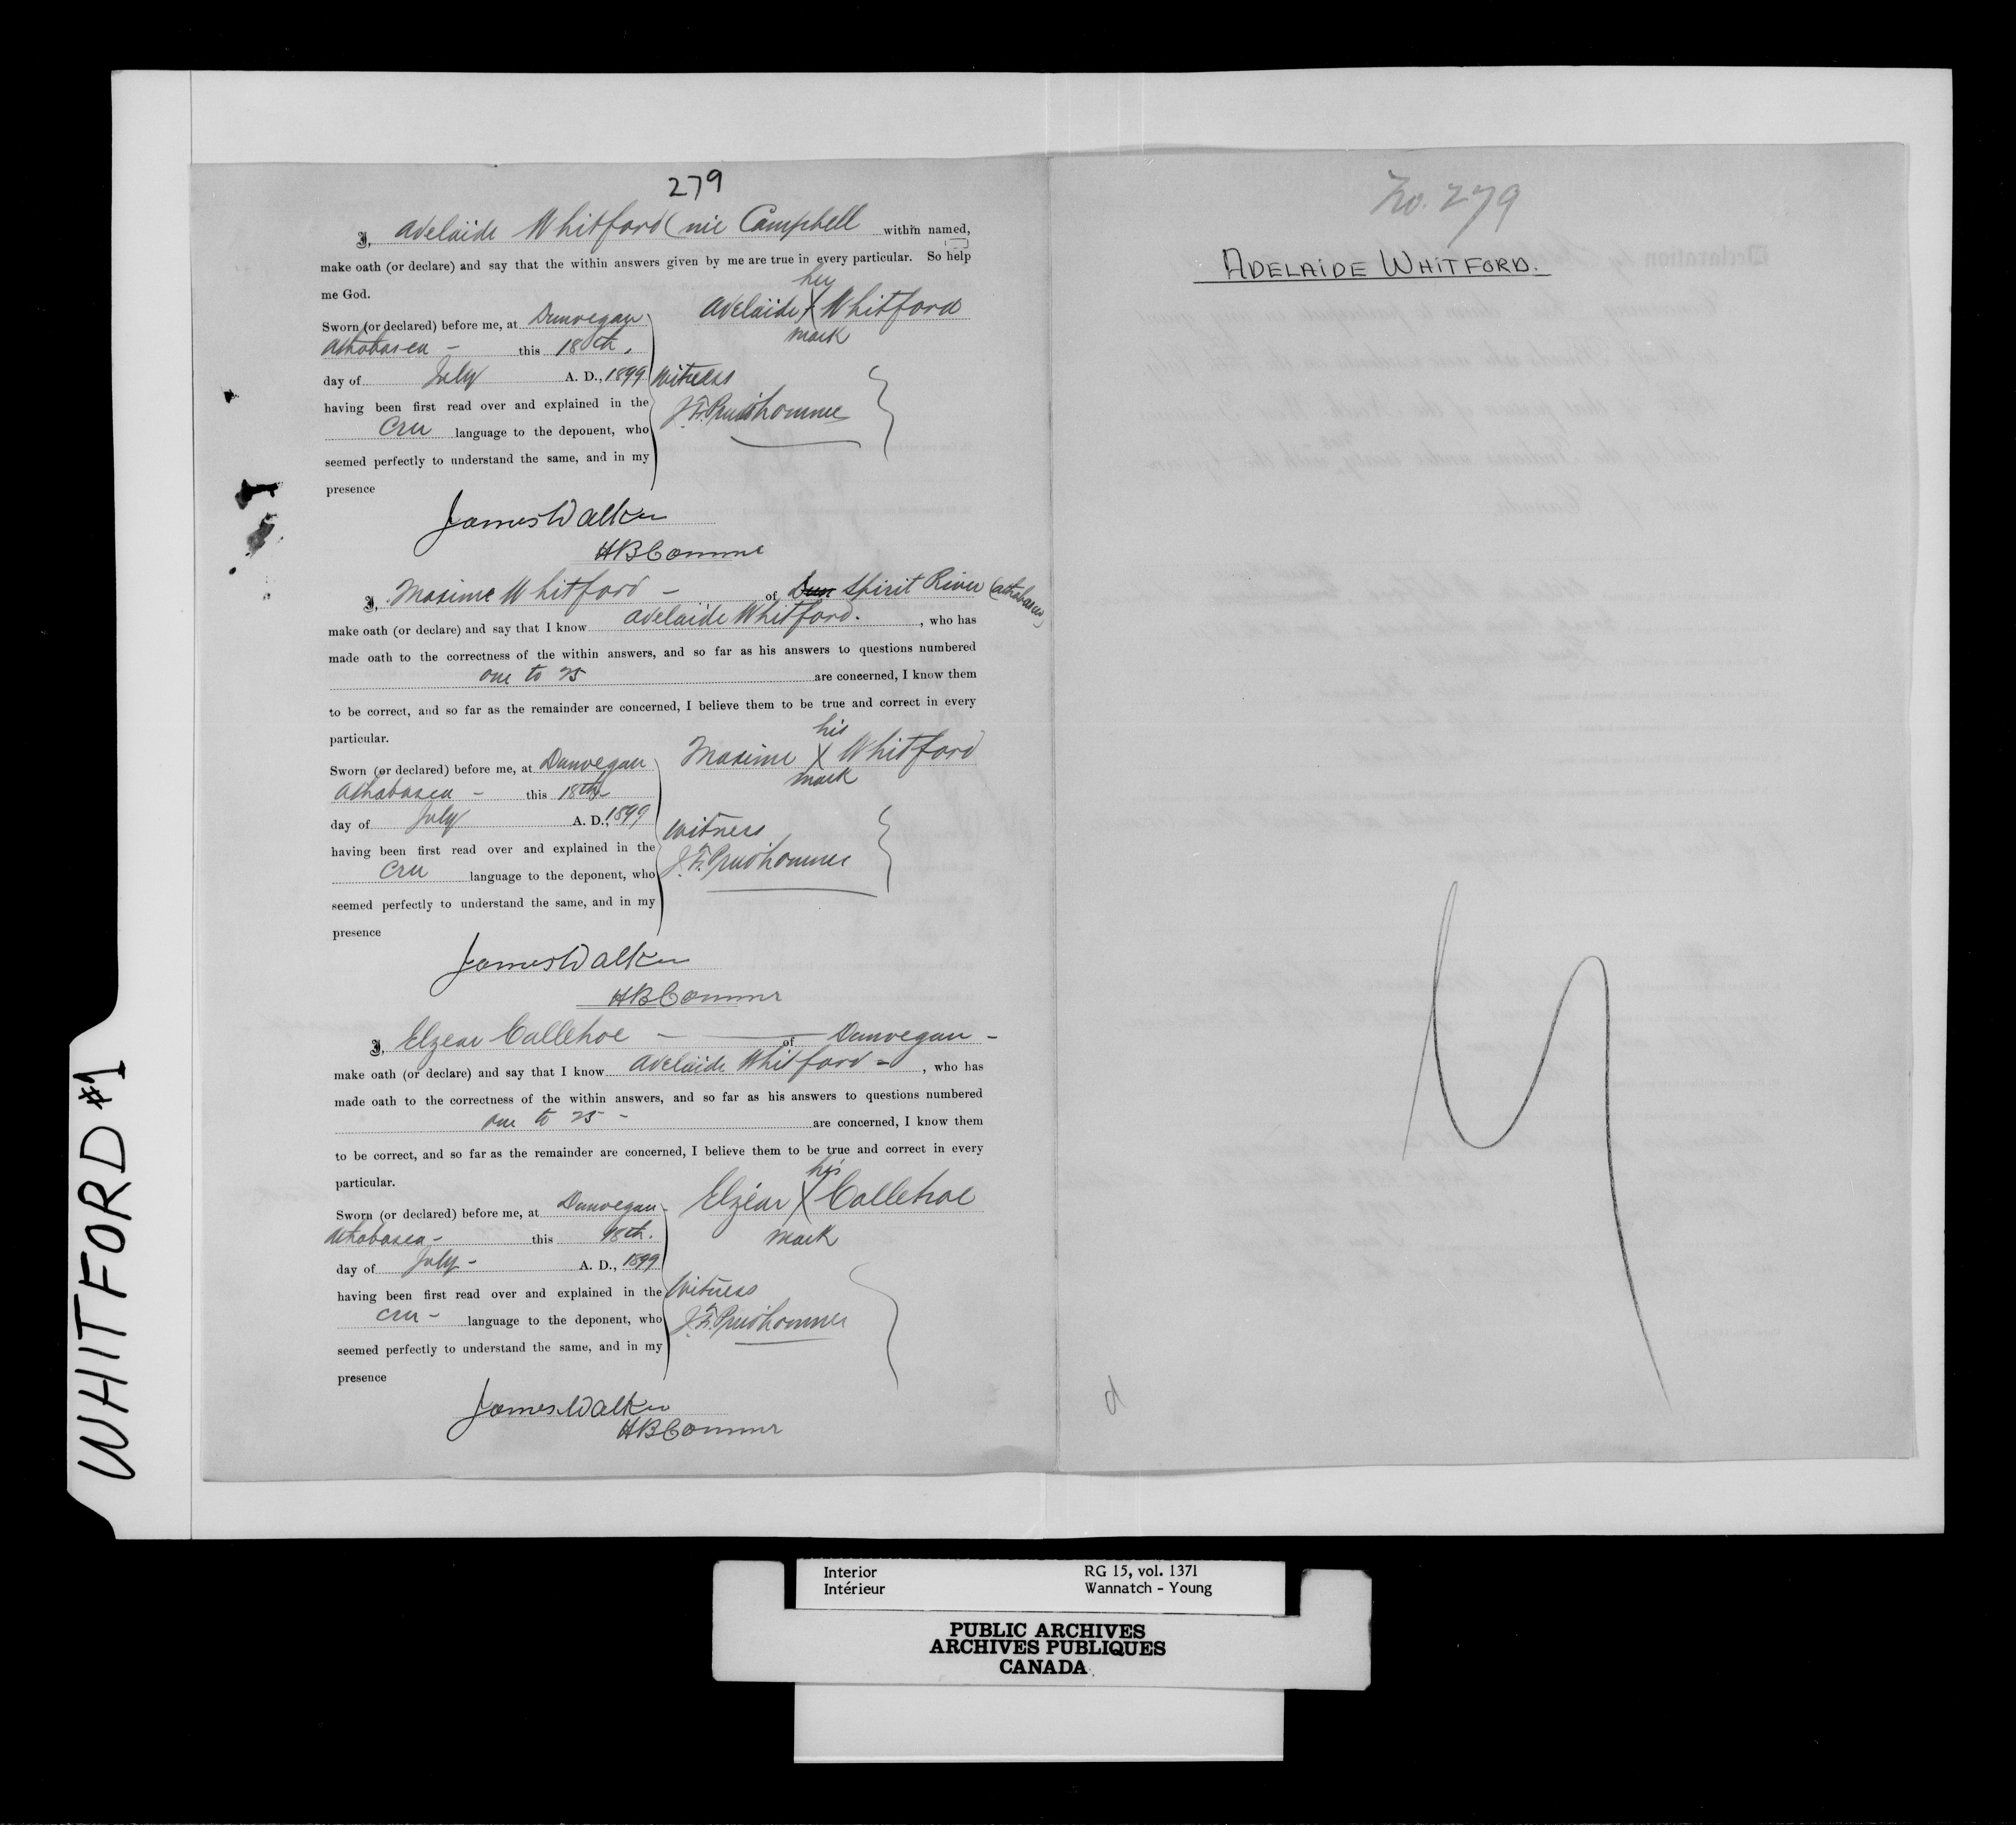 279
I, Adelaide Whitford (nie Campbell within named,
make oath (or declare) and say that the within answers given by me are true in every particular. So help
me God.
her
Adelaide X Whitford
mark
Sworn (or declared) before me, at Dunvegan
Athabasca - this 18th.
day of July A. D., 1899
having been first read over and explained in the
Cree language to the deponent, who
seemed perfectly to understand the same, and in my
presence
Witness
J. F. Prudhomme
James Walker
HB Commr
I, Maxime Whitford - of Dun Spirit River (Athabasca)
make oath (or declare) and say that I know Adelaide Whitford. , who has
made oath to the correctness of the within answers, and so far as his answers to questions numbered
one to 25 are concerned, I know them
to be correct, and so far as the remainder are concerned, I believe them to be true and correct in every
particular.
his
Maxime X Whitford
mark
Sworn (or declared) before me, at Dunvegan
Athabasca - this 18th
day of July A. D., 1899
having been first read over and explained in the
Cree language to the deponent, who
seemed perfectly to understand the same, and in my
presence
Witness
J. F. Prudhomme
James Walker
HB Commr
I, Elzear Callehoe - of Dunvegan -
make oath (or declare) and say that I know Adelaide Whitford - , who has
made oath to the correctness of the within answers, and so far as his answers to questions numbered
one to 25 - are concerned, I know them
to be correct, and so far as the remainder are concerned, I believe them to be true and correct in every
particular.
his
Elzéar X Callehoe
mark
Sworn (or declared) before me, at Dunvegan -
Athabasca - this 18th.
day of July - A. D., 1899
having been first read over and explained in the
Cree - language to the deponent, who
seemed perfectly to understand the same, and in my
presence
Witness
J. F. Prudhomme
James Walker
HB Commr
No. 279
ADELAIDE WHITFORD.
d
WHITFORD #1
Interior RG 15, vol. 1371
Intérieur Wannatch - Young
PUBLIC ARCHIVES
ARCHIVES PUBLIQUES
CANADA